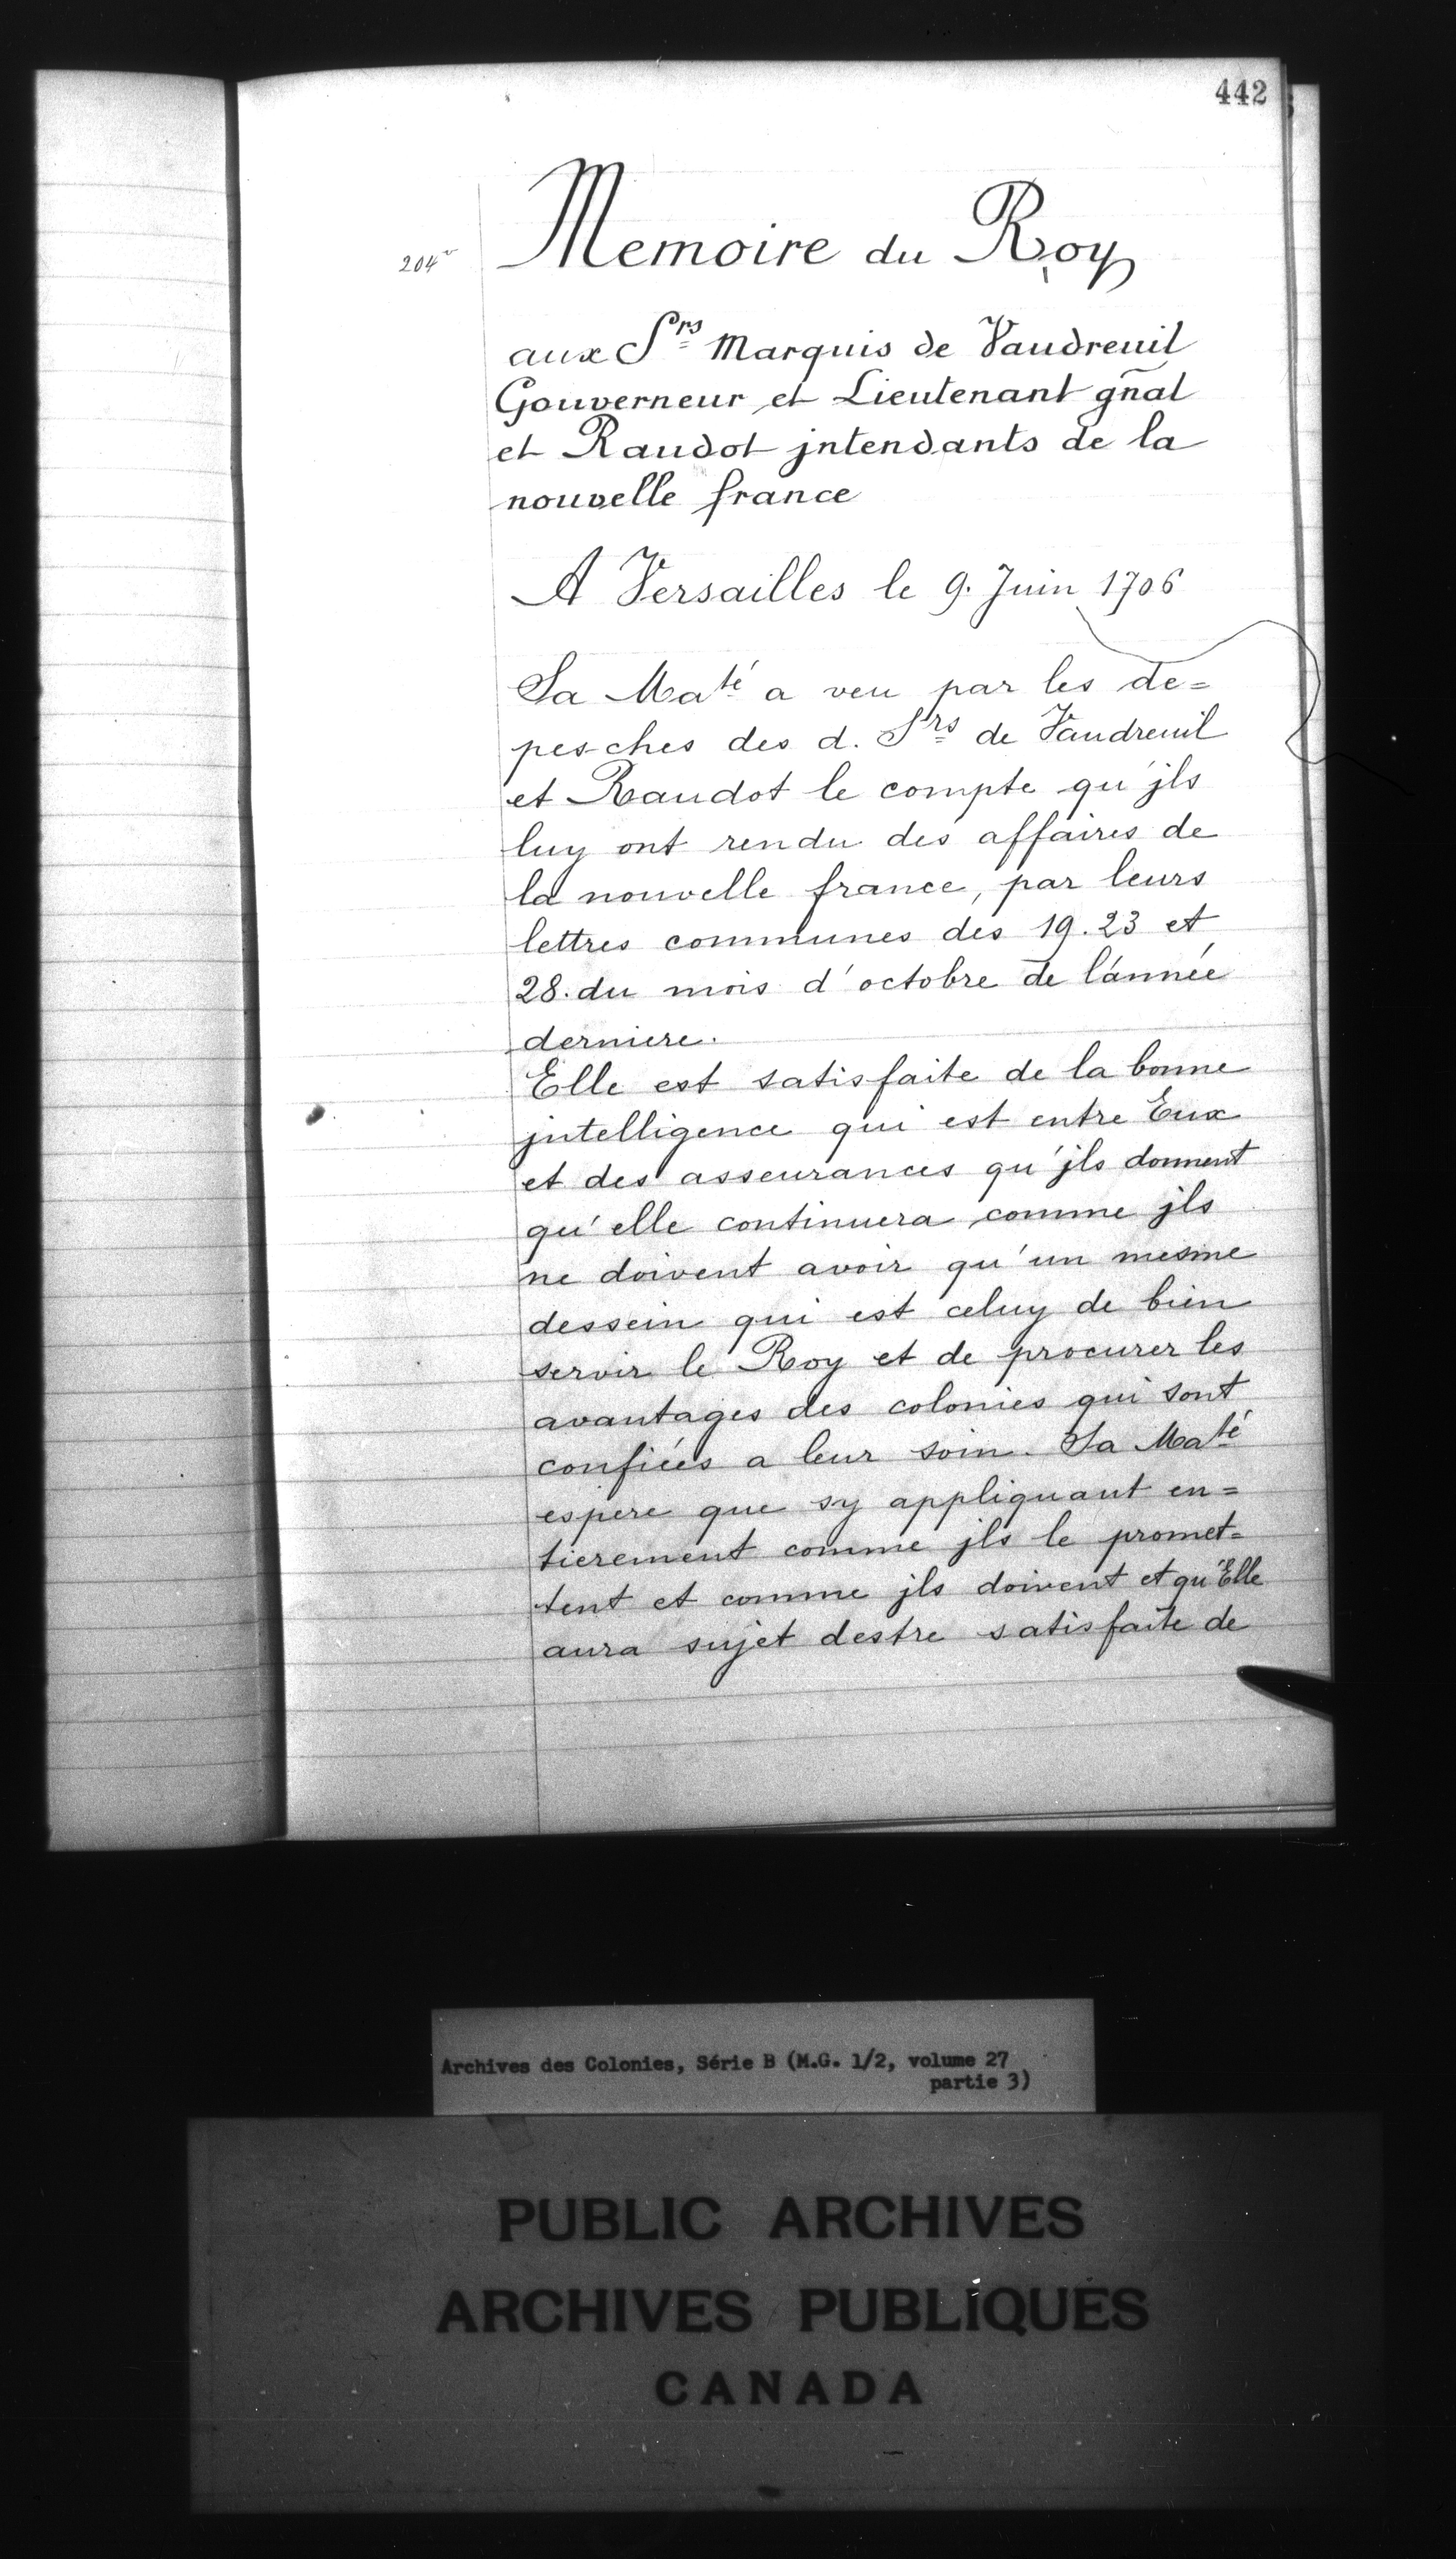 442
204v
Memoire du Roy
aux Srs Marquis de Vaudreuil
Gouverneur et Lieutenant gñal
et Raudot jntendants de la
nouvelle france
A Versailles le 9. Juin 1706
Sa Maté a veu par les de=
pesches des d. Srs de Vaudreuil
et Raudot le compte qu'jls
luy ont rendu des affaires de
la nouvelle france, par leurs
lettres communes des 19. 23 et
28. du mois d'octobre de l'année
derniere.
Elle est satisfaite de la bonne
jntelligence qui est entre Eux
et des asseurances qu'jls donnent
qu'elle continuera comme jls
ne doivent avoir qu'un mesme
dessein qui est celuy de bien
servir le Roy et de procurer les
avantages des colonies qui sont
confiées a leur soin. Sa Maté
espere que sy appliquant en=
tierement comme jls le promet=
tent et comme jls doivent et qu'Elle
aura sujet destre satisfaite de
Archives des Colonies, Série B (M.G. 1/2, volume 27
partie 3)
PUBLIC ARCHIVES
ARCHIVES PUBLIQUES
CANADA